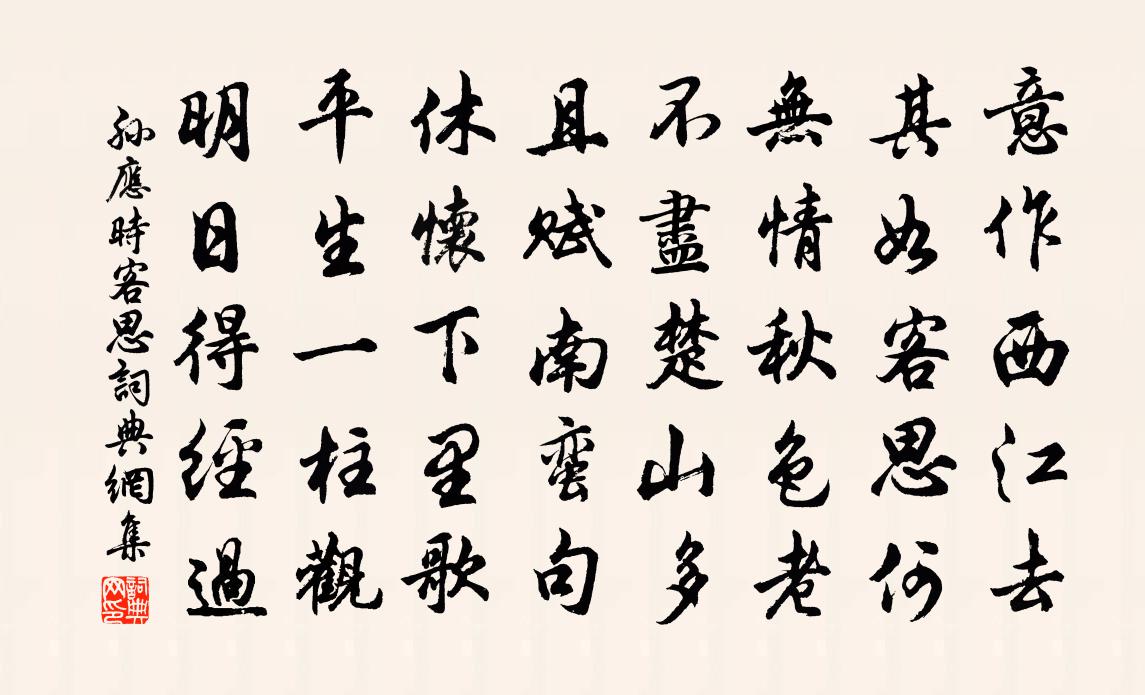 意作西江去
其如客思何
無情秋色老
不盡楚山多
且賦南蠻句
休懷下里歌
平生一柱觀
明日得經過
孫應時客思詞典網集
詞典网印